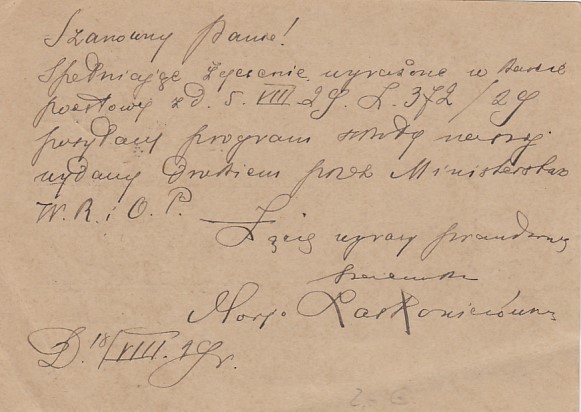 Szanowny Panie!
Spełniając życzenie wyrażone w karcie
pocztowej z d. 5. VIII. 29. L. 372/29
posyłamy program szkoły naszej
wydany drukiem przez Ministerstwo
W. R. i O. P.
Łączę wyrazy prawdziwego
szacunku
D. 18/VIII. 29 r.